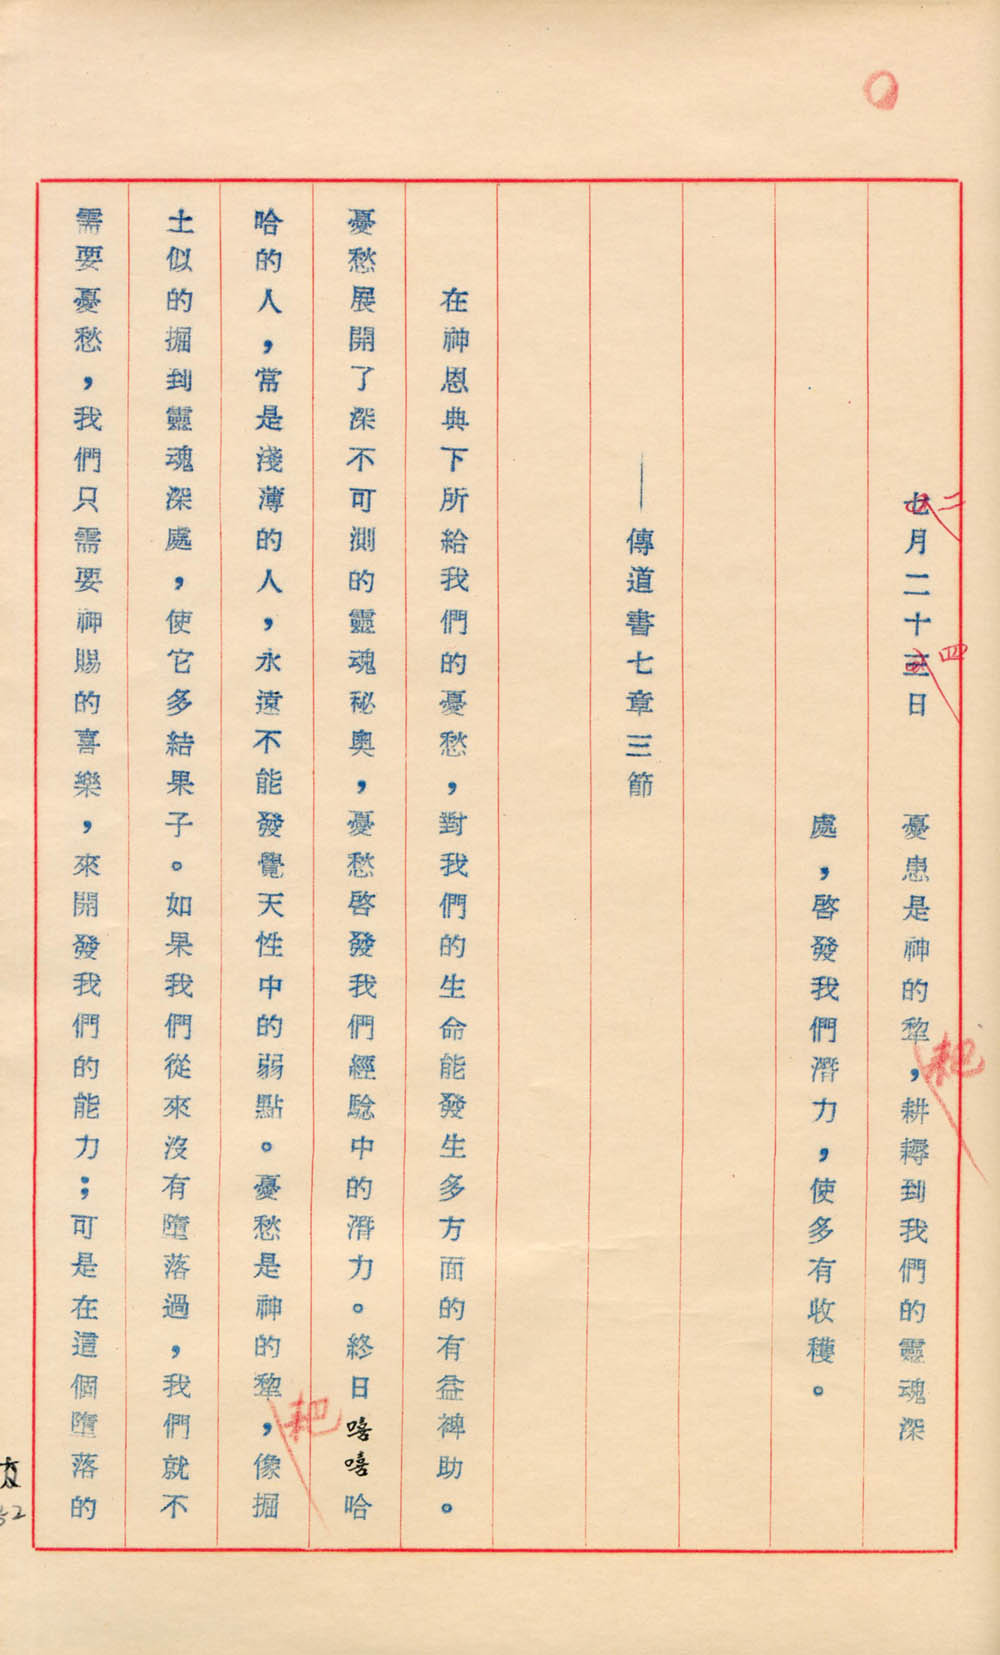 七月二十三日　憂患是神的犂，耕耨到我們的靈魂深
二
四
耙
處，啓發我們潛力，使多有收穫。
——傳道書七章三節
在神恩典下所給我們的憂愁，對我們的生命能發生多方面的有益裨助。
憂愁展開了深不可測的靈魂秘奧，憂愁啓發我們經驗中的潛力。終日嘻嘻哈
哈的人，常是淺薄的人，永遠不能發覺天性中的弱點。憂愁是神的犂，像掘
耙
土似的掘到靈魂深處，使它多結果子。如果我們從來沒有墮落過，我們就不
需要憂愁，我們只需要神賜的喜樂，來開發我們的能力；可是在這個墮落的